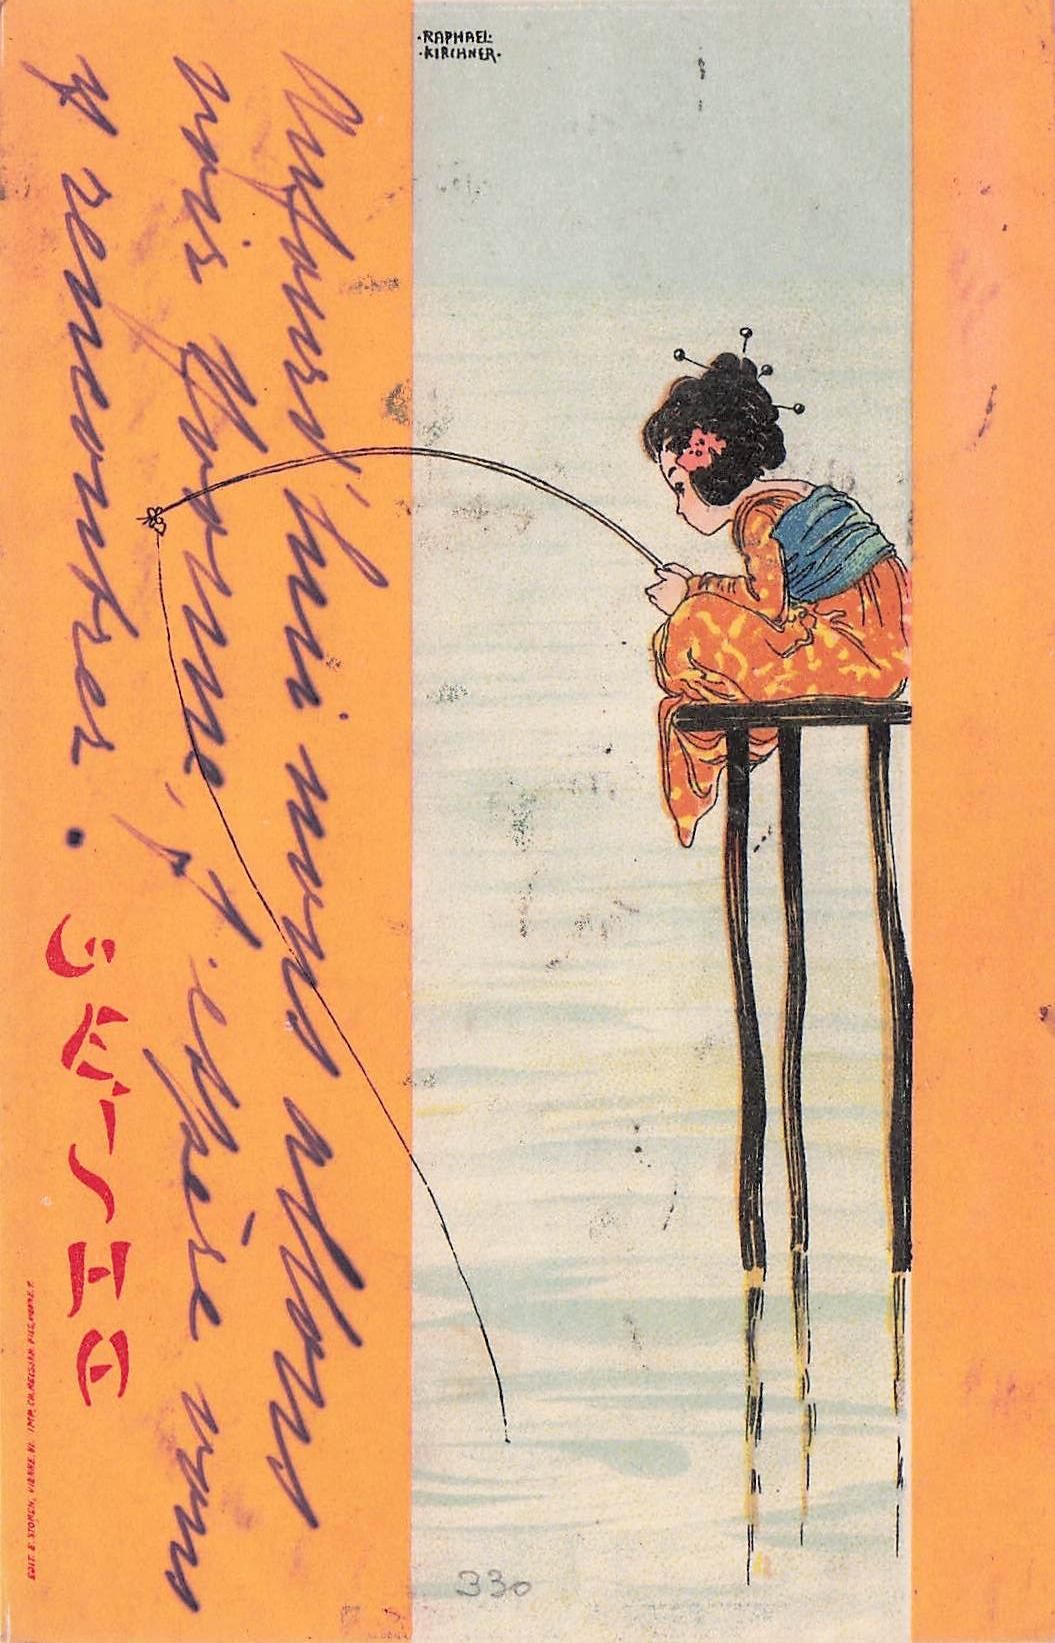 ·RAPHAEL·
·KIRCHNER·
Aujourd'hui nous allons
voir Yvonne, j'espère vous
y rencontrer.
GEISHA
EDIT. E. STORCH, VIENNE, VI. IMP. CH.
330